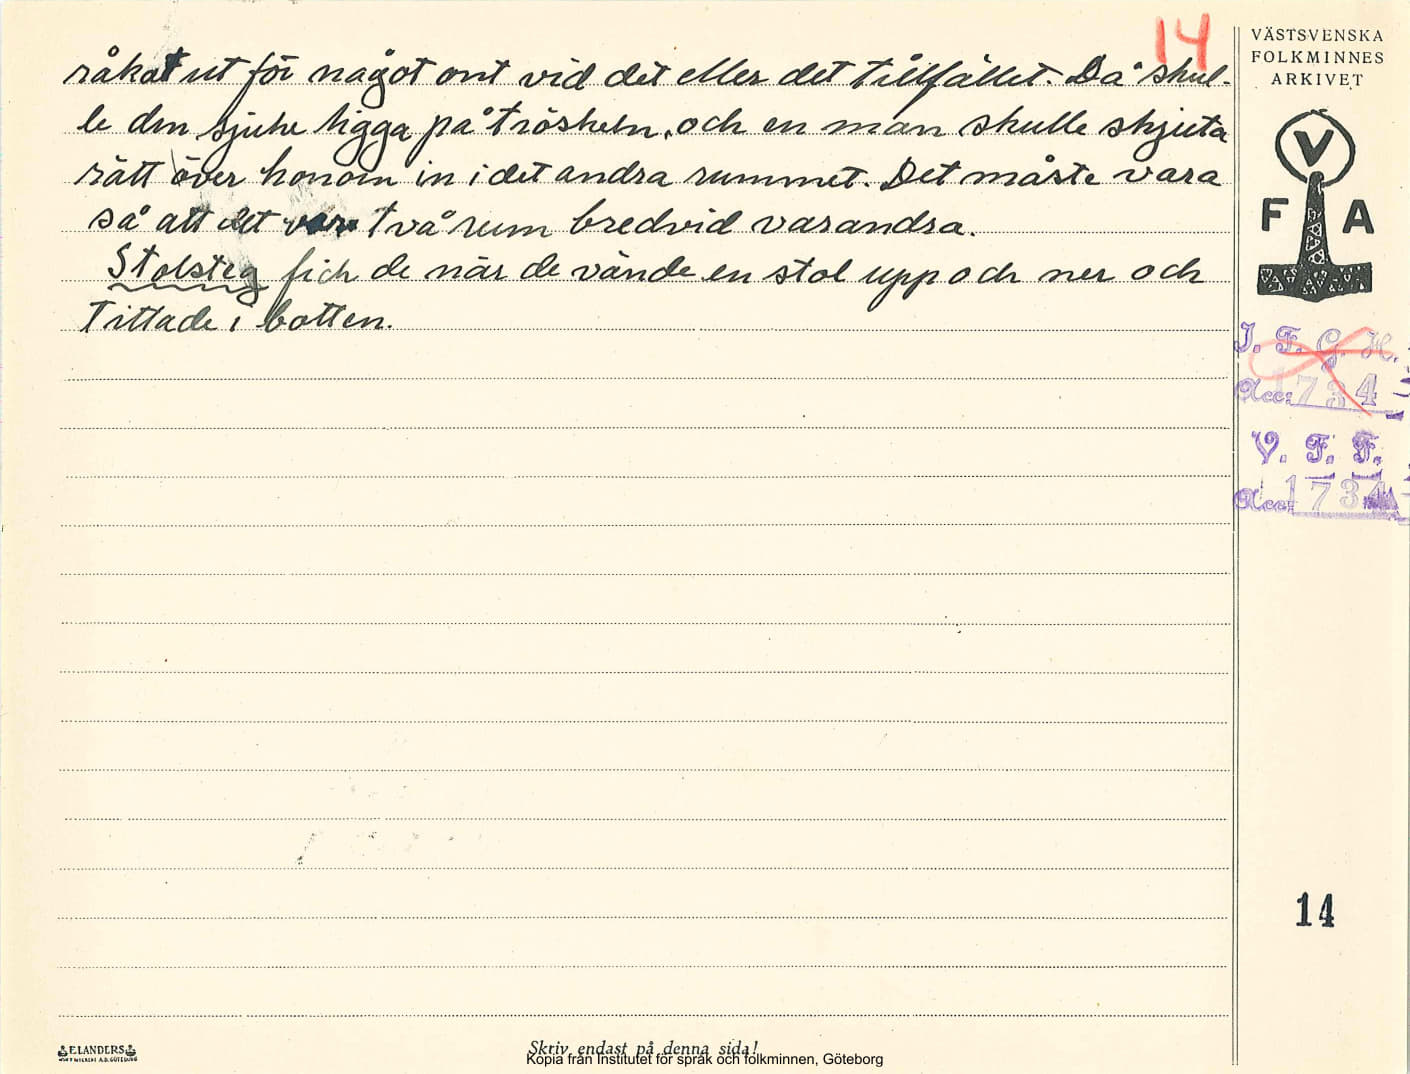 14
råkat ut för något ont vid det eller det tillfället. Då skul-
le den sjuke ligga på tröskeln, och en man skulle skjuta
rätt över honom in i det andra rummet. Det måste vara
så att det var två rum bredvid varandra.
Stolsteg fick de när de vände en stol upp och ner och
tittade i botten.
VÄSTSVENSKA
FOLKMINNES
ARKIVET
V
F A
I. F. G. H.
Acc: 1734
V. F. F.
Acc: 1734
14
ELANDERS
Skriv endast på denna sida!
Kopia från Institutet för språk och folkminnen, Göteborg